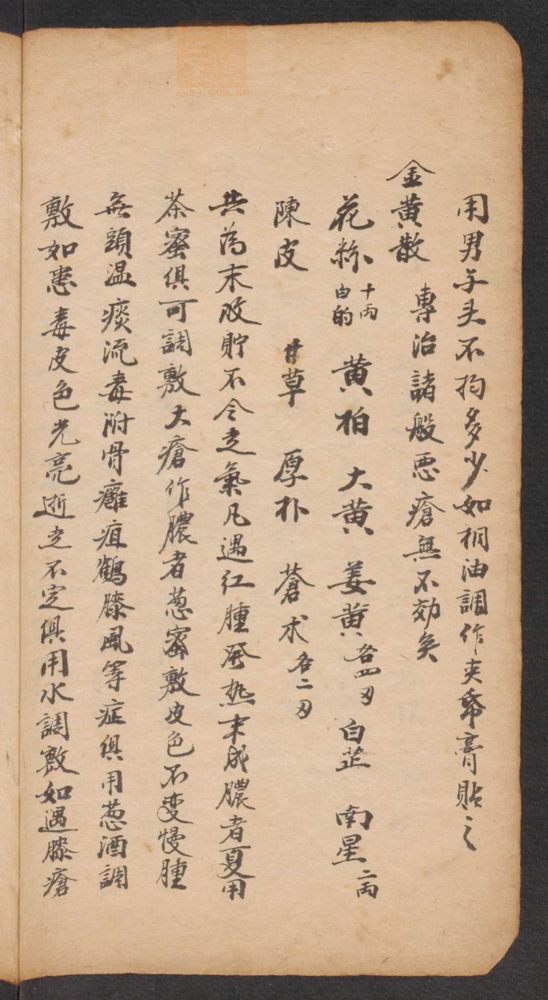 用男子头不拘多少如桐油調作夹番膏貼之
金黄散　專治諸般惡瘡無不効矣
花粉十両由的　黄柏　大黄　姜黄各四刄　白芷　南星二両
陳皮　甘草　厚朴　蒼术各二刄
共為末收貯不令走氣凡遇红腫發热未成膿者夏用
茶蜜俱可調敷大瘡作膿者葱蜜敷皮色不变慢腫
無頭温痰流毒附骨癰疽鶴膝風等症俱用葱酒調
敷如患毒皮色光亮逝走不定俱用水調敷如遇膝瘡